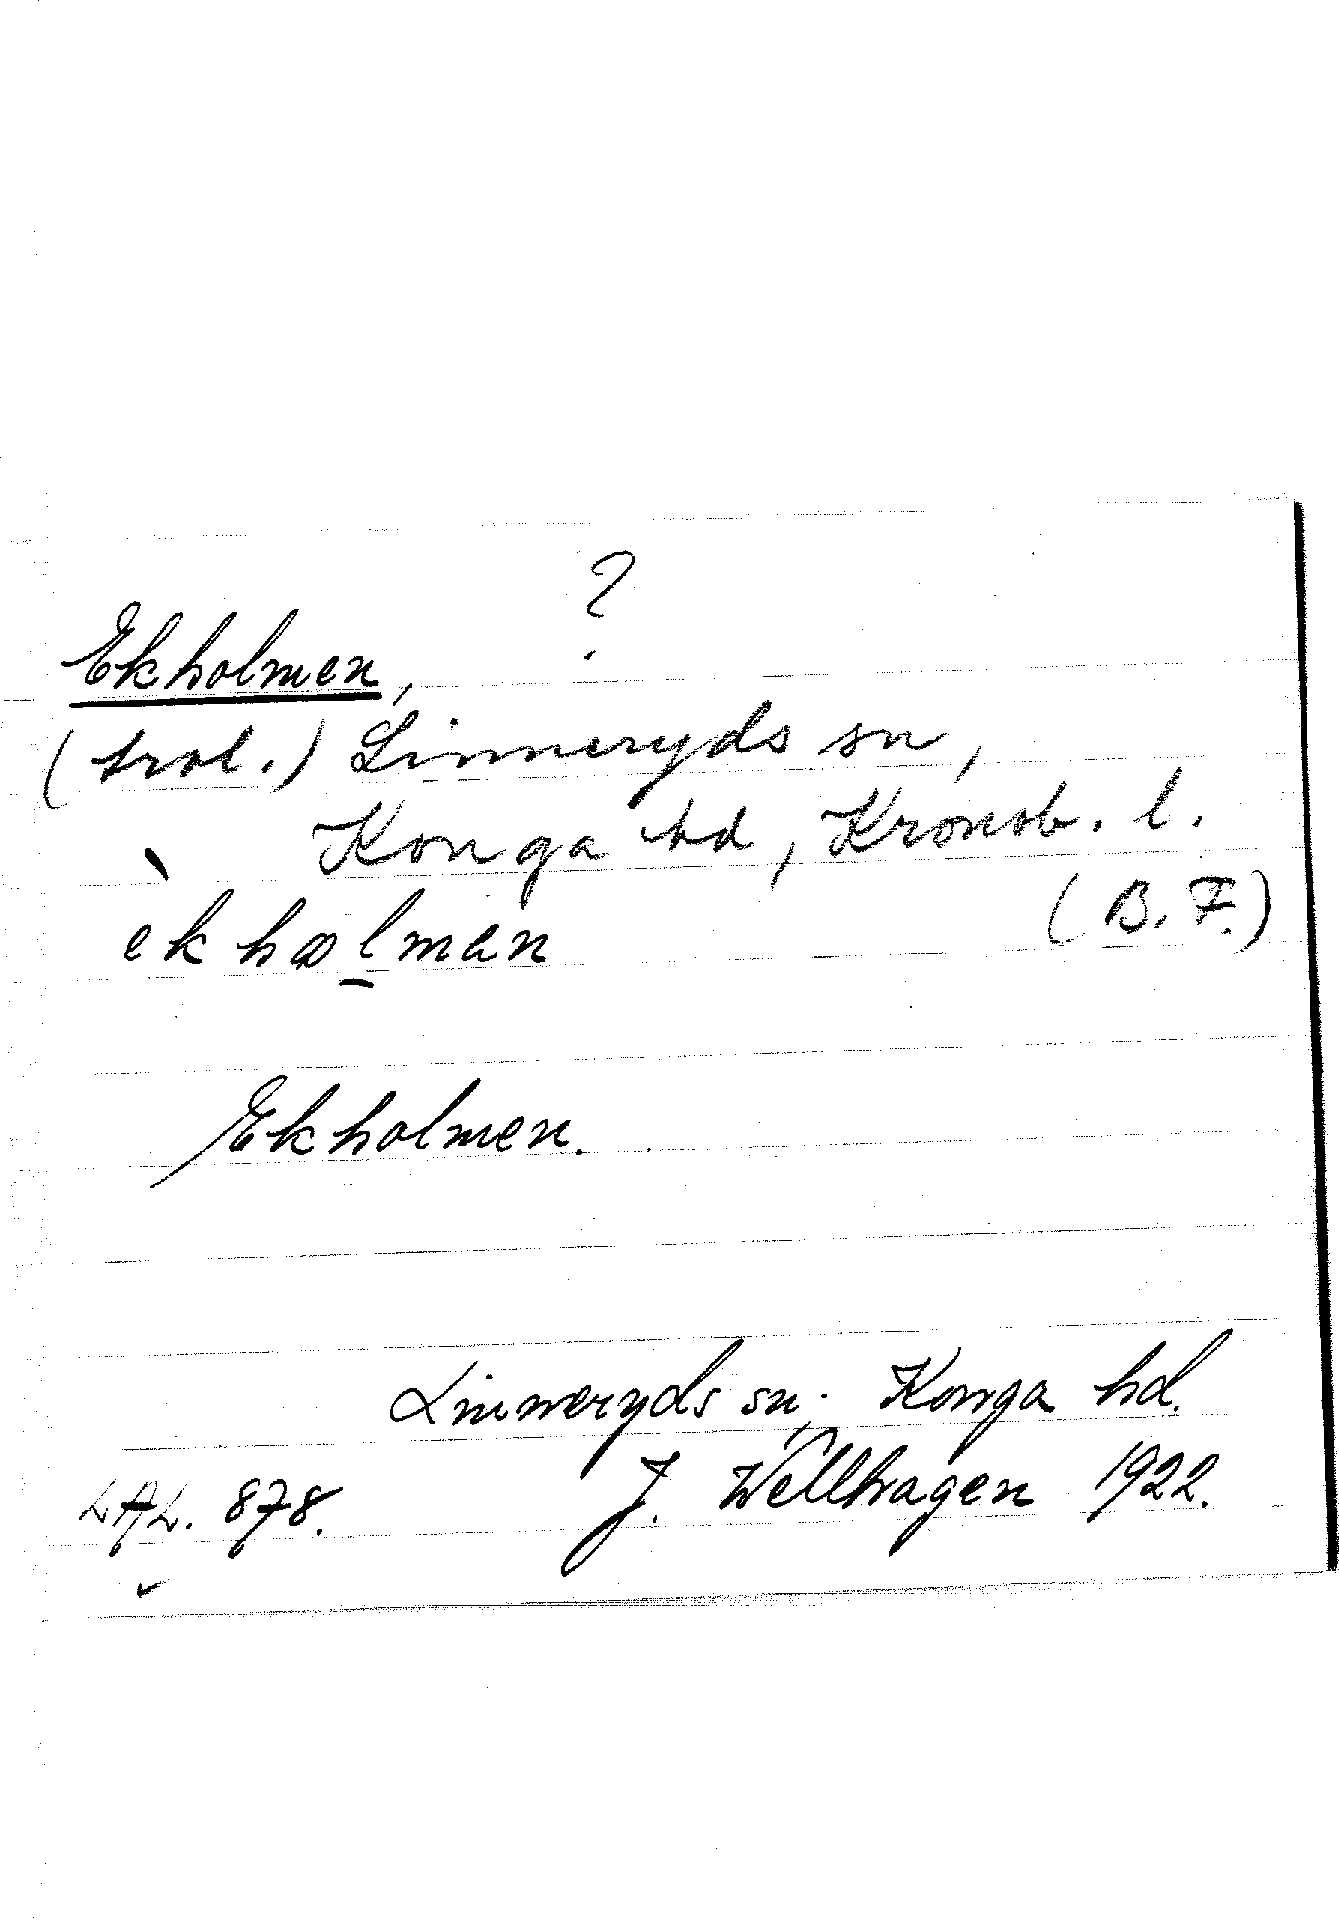 ?
Ekholmen,
(trol.) Linneryds sn,
Konga hd, Kronob. l.
(B. F.)
èkhɷlmən
Ekholmen.
Linneryds sn, Konga hd.
LAL. 878. J. Wellhagen 1922.